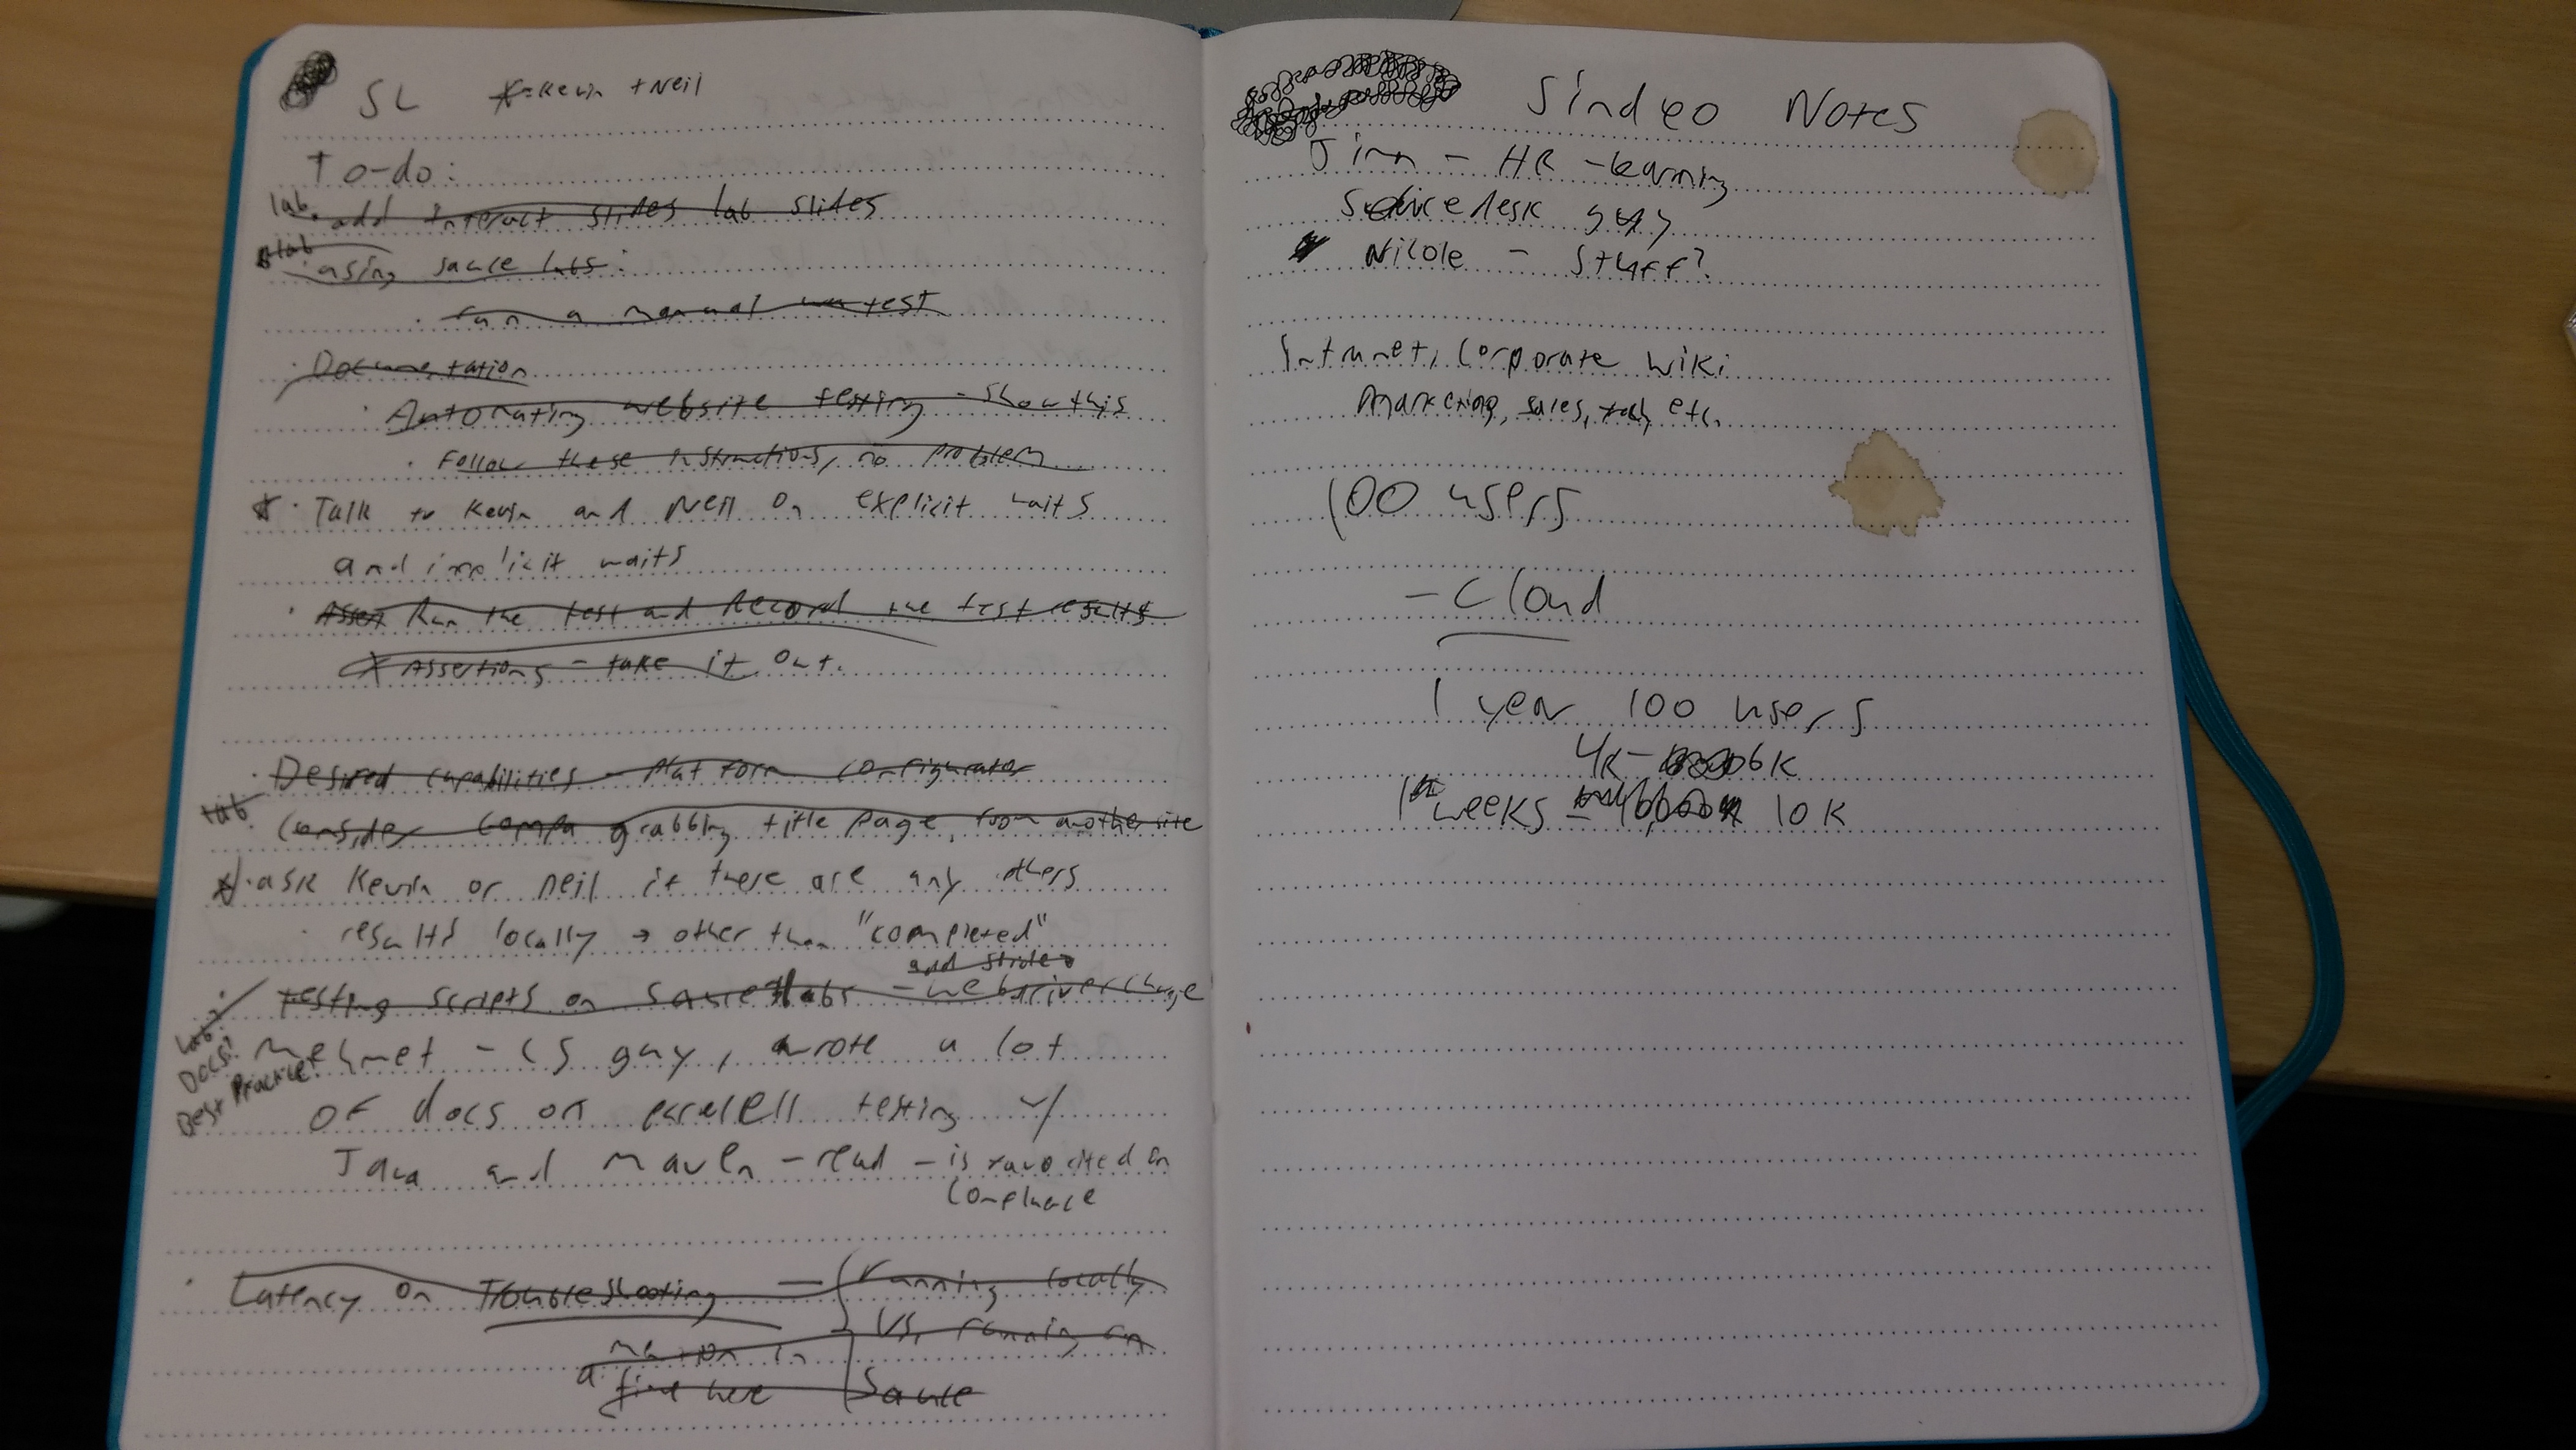 SL *=Kevin + Neil
To-do:
lab. add Interact slides lab slides
lab · using sauce labs:
· run a manual test
· Documentation
· Automating website testing - show this
· Follow these instructions, no problem
* · Talk to Kevin and Neil on explicit waits
and implicit waits
· Assert Run the test and Record the test results
* Assertions - take it out.
· Desired capabilities - Platform configurator
lab. Consider compa grabbing title page, from another site
* · ask Kevin or neil if there are any others
· results locally → other than "completed"
add slide
· testing scripts on Sauce labs - webdriver change
lab
Docs!
Best Practice!
Mehmet - CS guy, wrote a lot
of docs on parelell testing w/
Java and Maven - read - is favorited on
Confluence
· Latency on Troubleshooting - running locally
vs. running on
Sauce
find here
Sindeo Notes
Jinn - HR - learning
Service desk guy
Nicole - Stuff?
Intranet, Corporate wiki
Marketing, sales, tech, etc.
100 users
- Cloud
1 year 100 users
4K - 6K
weeks - 10K